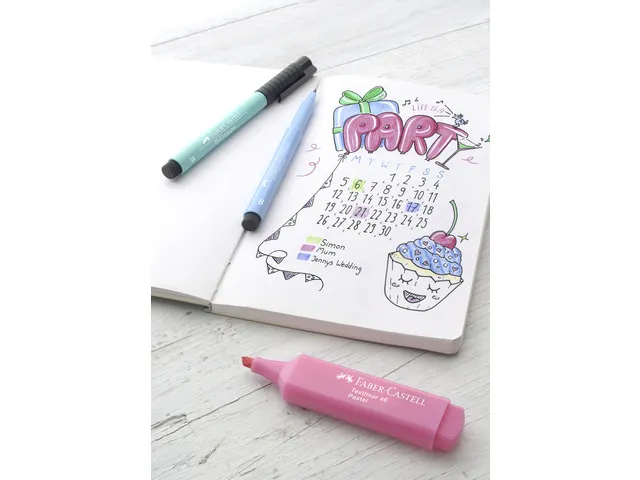 LIFE IS A
PARTY
M T W T F S S
1 2 3 4
5 6 7 8 9 10 11
12 13 14 15 16 17 18
19 20 21 22 23 24 25
26 27 28 29 30
Simon
Mum
Jennys Wedding
FABER-CASTELL
B
FABER-CASTELL
Textliner 46
Pastel